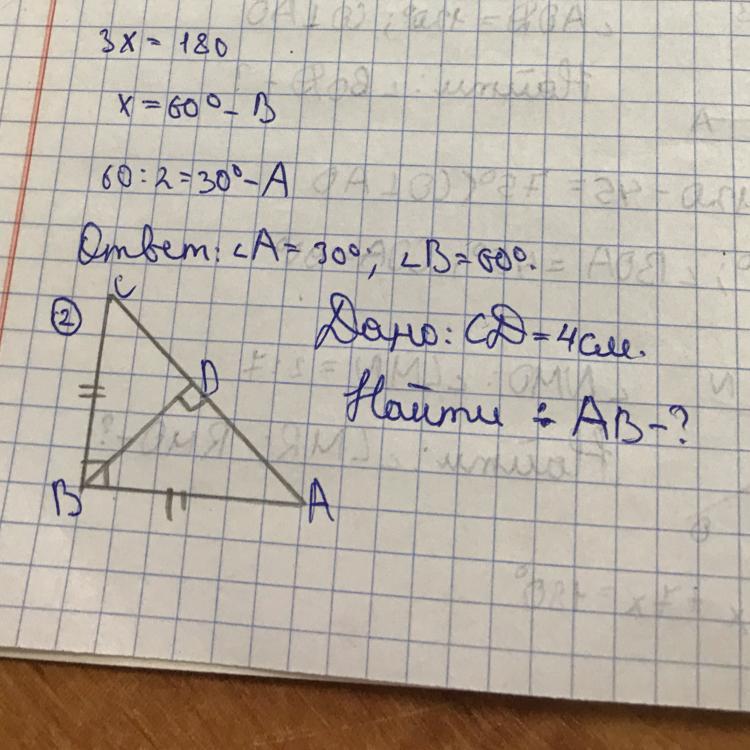 3x = 180
x = 60° - B
60 : 2 = 30° - A
Ответ: ∠A = 30°; ∠B = 60°.
2
C
Дано: CD = 4см.
D
Найти: AB - ?
B
A